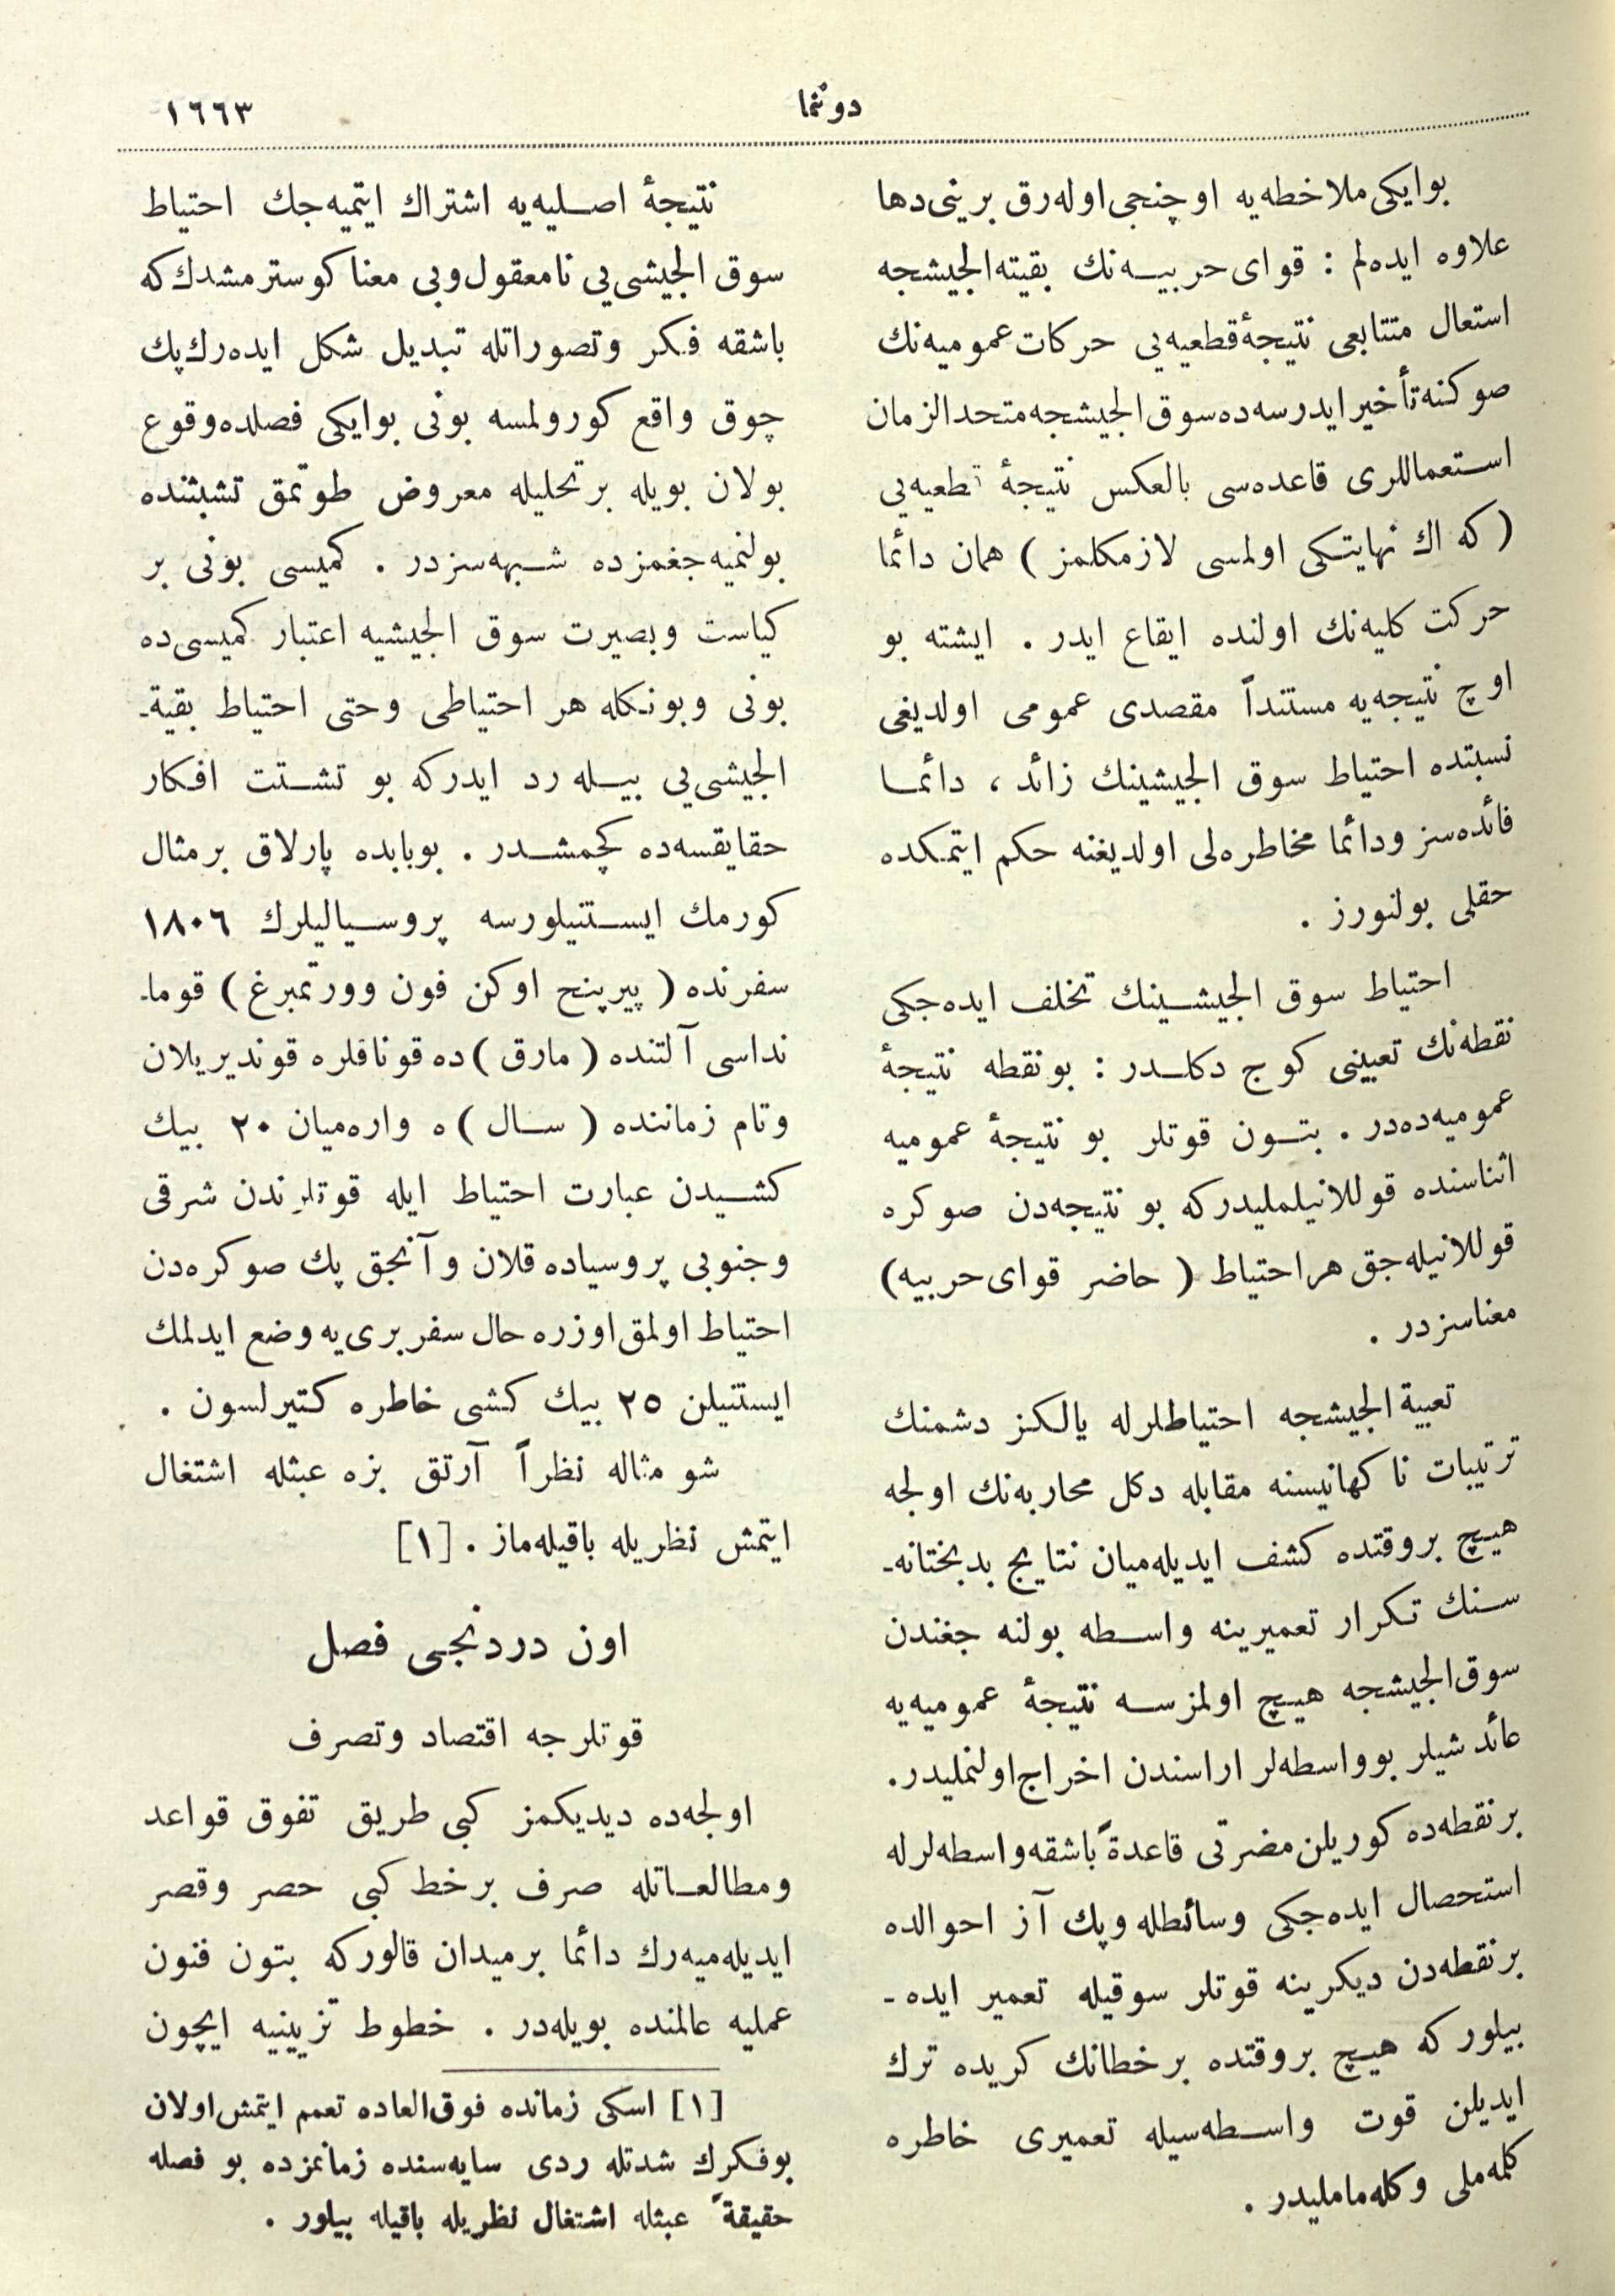 دوننما
١٦٦٣
بو ایكی ملاخظه‌یه اوچنجی اوله‌رق برینی دها
علاوه ایده‌لم : قوای حربیه‌نك بقیته الجیشجه
استعال متتابعی نتیجهٔ قطعیه‌یی حركات عمومیه‌نك
صوكنه تأخیر ایدرسه‌ده سوق الجیشجه متحد الزمان
استعماللری قاعده‌سی بالعكس نتیجهٔ قطعیه‌یی
( كه اك نهایتكی اولمسی لازمكلمز ) همان دائما
حركت كلیه‌نك اولنده ایقاع ایدر . ایشته بو
اوچ نتیجه‌یه مستنداً مقصدی عمومی اولدیغی
نسبتده احتیاط سوق الجیشینك زائد ، دائما
فائده‌سز ودائما مخاطره‌لی اولدیغنه حكم ایتمكده
حقلی بولنورز .
احتیاط سوق الجیشینك تخلف ایده‌جكی
نقطه‌نك تعیینی كوج دكلدر : بونقطه نتیجهٔ
عمومیه‌ده‌در . بتون قوتلر بو نتیجهٔ عمومیه
اثناسنده قوللانیلملیدركه بو نتیجه‌دن صوكره
قوللانیله‌جق هر احتیاط ( حاضر قوای حربیه )
معناسزدر .
تعبیة الجیشجه احتیاطلرله یالكز دشمنك
ترتیبات ناكهانیسنه مقابله دكل محاربه‌نك اولجه
هیچ بروقتده كشف ایدیله‌میان نتایج بدبختانه-
سنك تكرار تعمیرینه واسطه بولنه جغندن
سوق الجیشجه هیچ اولمزسه نتیجهٔ عمومیه‌یه
عائد شیلر بو واسطه‌لر اراسندن اخراج اولنملیدر.
برنقطه‌ده كوریلن مضرتی قاعدةً باشقه واسطه‌لرله
استحصال ایده‌جكی وسائطله وپك آز احوالده
برنقطه‌دن دیكرینه قوتلر سوقیله تعمیر ایده -
بیلور كه هیچ بروقتده برخطانك كریده ترك
ایدیلن قوت واسطه‌سیله تعمیری خاطره
كلمه‌ملی وكله‌ماملیدر .
نتیجهٔ اصلیه‌یه اشتراك ایتمیه‌جك احتیاط
سوق الجیشی‌یی نامعقول وبی معنا كوسترمشدك كه
باشقه فكر وتصوراتله تبدیل شكل ایده‌رك پك
چوق واقع كورولمسه بونی بوایكی فصلده وقوع
بولان بویله برتحلیله معروض طوتمق تشبثنده
بولنمیه‌جغمزده شبهه‌سزدر . كمیسی بونی بر
كیاست وبصیرت سوق الجیشیه اعتبار كمیسی‌ده
بونی وبونكله هر احتیاطی وحتی احتیاط بقیة-
الجیشی‌یی بیله رد ایدركه بو تشتت افكار
حقایقسه‌ده كچمشدر . بوبابده پارلاق برمثال
كورمك ایستنیلورسه پروسیالیلرك ١٨٠٦
سفرنده ( پیرینج اوكن فون وورتمبرغ ) قوما-
نداسی آلتنده ( مارق ) ده قوناقلره قوندیریلان
وتام زماننده ( سال ) ه واره‌میان ٢٠ بیك
كشیدن عبارت احتیاط ایله قوتلرندن شرقی
وجنوبی پروسیاده قلان وآنجق پك صوكره‌دن
احتیاط اولمق اوزره حال سفربری‌یه وضع ایدلمك
ایستنیلن ٢٥ بیك كشی خاطره كتیرلسون .
شو مثاله نظراً آرتق بزه عبثله اشتغال
ایتمش نظریله باقیله‌ماز . [١]
اون دردنجی فصل
قوتلرجه اقتصاد وتصرف
اولجه‌ده دیدیكمز كبی طریق تفوق قواعد
ومطالعاتله صرف برخط كبی حصر وقصر
ایدیله‌میه‌رك دائما برمیدان قالوركه بتون فنون
عملیه عالمنده بویله‌در . خطوط تزیینیه ایچون
[١] اسكی زمانده فوق العاده تعمم ایتمش اولان
بوفكرك شدتله ردی سایه‌سنده زمانمزده بو فصله
حقیقةً عبثله اشتغال نظریله باقیله بیلور .